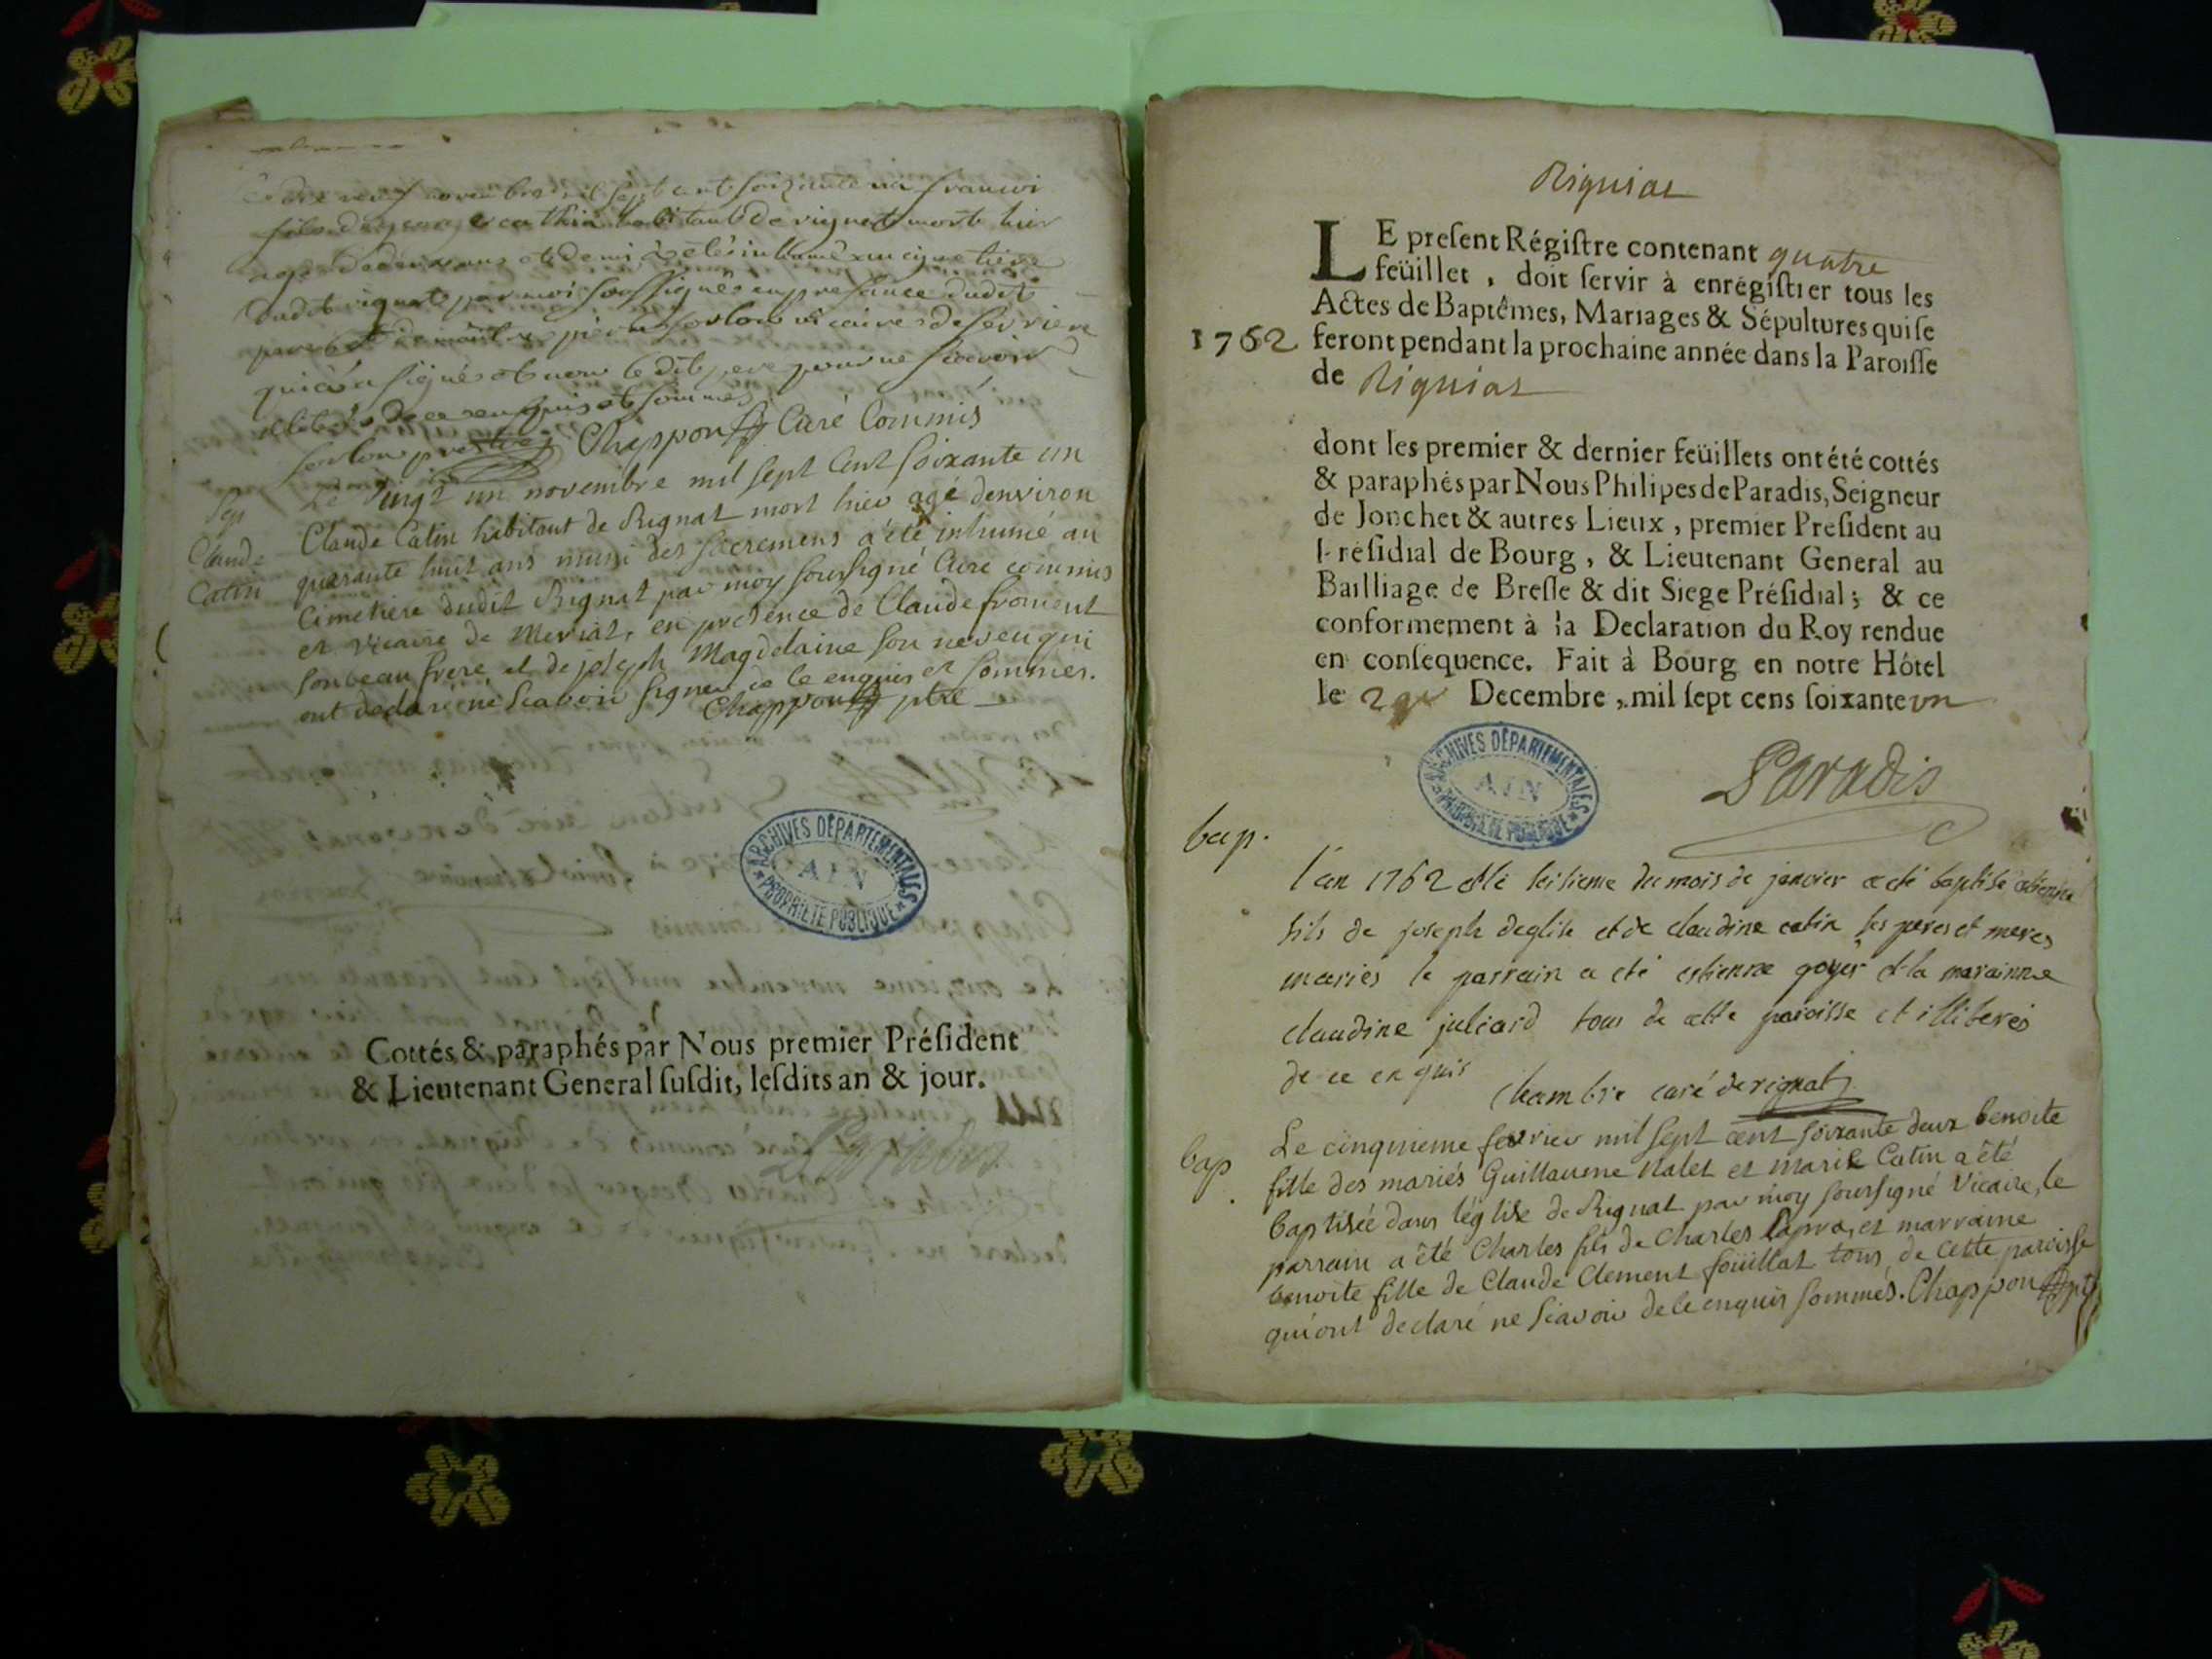 neuf novembre mil sept cent soixante un francoi
fils de george cathin habitant de rignat mort hier
agé de deux ans et demi a été inhumé au cimetiere
dudit rignat par moi soussigné en presance dudit
vicaire de
qui a signé et non le dit pere pour ne scavoir
de ce enquis et sommé
Chappon Curé Commis
Sep
Claude
Catin
Le vingt un novembre mil sept cent soixante un
Claude Catin habitant de Rignat mort hier agé denviron
quarante huit ans muni des sacremens a été inhumé au
Cimetiere dudit Rignat par moy soussigné Curé commis
et Vicaire de Meriat, en presence de Claude froment
son beau frere et de joseph Magdelaine son neveu qui
ont declaré ne scavoir signer de ce enquis et sommés.
Chappon ptre
ARCHIVES DÉPARTEMENTALES
AIN
PROPRIÉTÉ PUBLIQUE
Cottés & paraphés par Nous premier Préſident
& Lieutenant General ſuſdit, leſdits an & jour.
Paradis
Rigniat
LE preſent Régiſtre contenant quatre
feüillet, doit ſervir à enrégiſtrer tous les
Actes de Baptêmes, Mariages & Sépultures qui ſe
1762 feront pendant la prochaine année dans la Paroiſſe
de Rigniat
dont les premier & dernier feüillets ont été cottés
& paraphés par Nous Philipes de Paradis, Seigneur
de Jonchet & autres Lieux, premier Preſident au
Préſidial de Bourg, & Lieutenant General au
Bailliage de Breſſe & dit Siege Préſidial; & ce
conformement à la Declaration du Roy rendue
en conſequence. Fait à Bourg en notre Hôtel
le Decembre, mil ſept cens ſoixante un
Paradis
ARCHIVES DÉPARTEMENTALES
AIN
PROPRIÉTÉ PUBLIQUE
bap.
l'an 1762 et le seisieme du mois de janvier a été baptisé etienne
fils de joseph deglise et de claudine catin ses peres et meres
mariés le parrain a été estienne goyer et la marainne
claudine juliard tous de cette paroisse et illiterés
de ce enquis
Chambre curé de rignat
bap
Le cinquieme fevrier mil sept cent soixante deux benoite
fille des mariés Guillaume Nalet et marie Catin a été
baptisée dans léglise de Rignat par moy soussigné Vicaire, le
parrain a été Charles fils de Charles Lapra, et marraine
benoite fille de Claude Clement foüillat tous de cette paroisse
qui ont declaré ne scavoir de ce enquis sommés. Chappon ptre